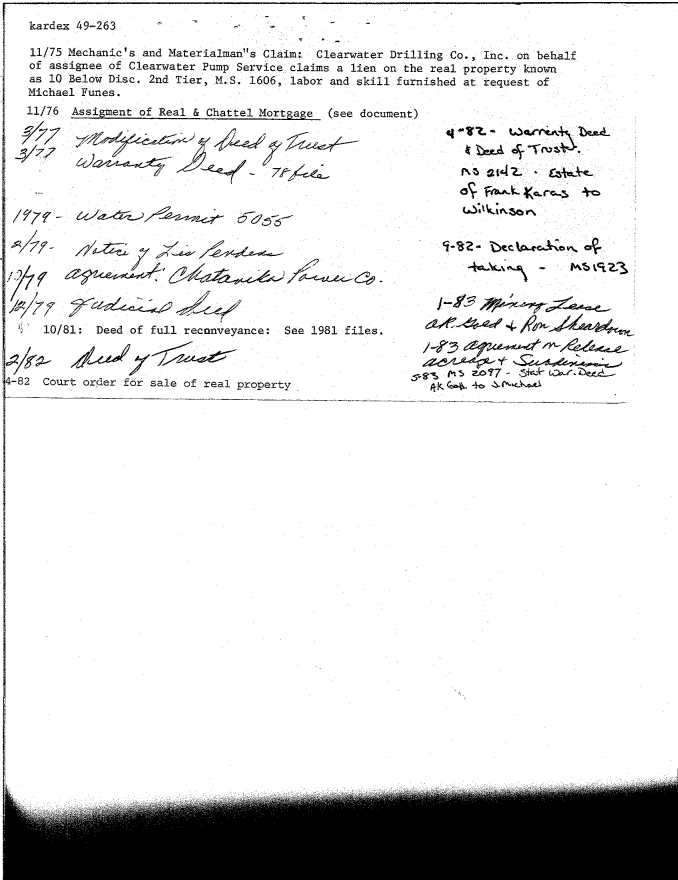 kardex 49-263
11/75 Mechanic's and Materialman"s Claim: Clearwater Drilling Co., Inc. on behalf
of assignee of Clearwater Pump Service claims a lien on the real property known
as 10 Below Disc. 2nd Tier, M.S. 1606, labor and skill furnished at request of
Michael Funes.
11/76 Assigment of Real & Chattel Mortgage (see document)
3/77 Modification of Deed of Trust
3/77 Warranty Deed - 78 file
1979 - Water Permit 5055
2/79 - Notice of Lis Pendens
/79 agreement: Chatanika Power Co.
12/79 Judicial Deed
10/81: Deed of full reconveyance: See 1981 files.
2/82 Deed of Trust
4-82 Court order for sale of real property
4-82 - Warrenty Deed
& Deed of Trust.
MS 2142 - Estate
of Frank Karas to
Wilkinson
9-82 - Declaration of
taking - MS1923
1-83 Mining Lease
AK Gold & Ron Sheardown
1-83 agreement on Release
acreage + Subdivision
5-83 MS 2097 - Stat War. Deed
AK Gold to J. Michael